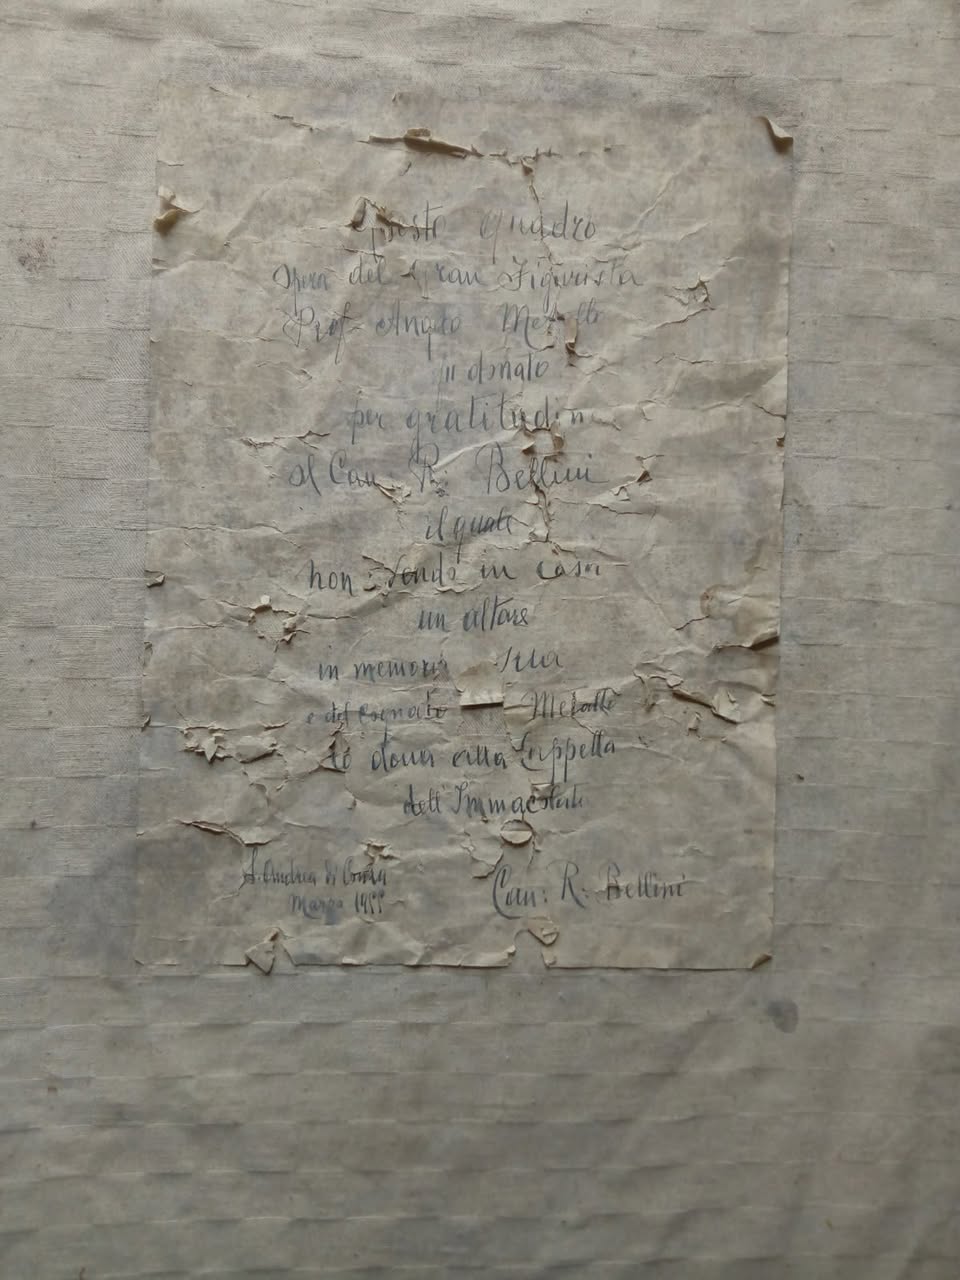 Questo quadro
opera del Gran Figurista
Prof. Angelo
fu donato
per gratitudin
al Can: R. Bellini
il quale
non in casa
un altare
in memoria sua
e del cognato
lo dona alla Cappella
dell'Immacolata
S. Andrea di Conza
Marzo
Can: R. Bellini